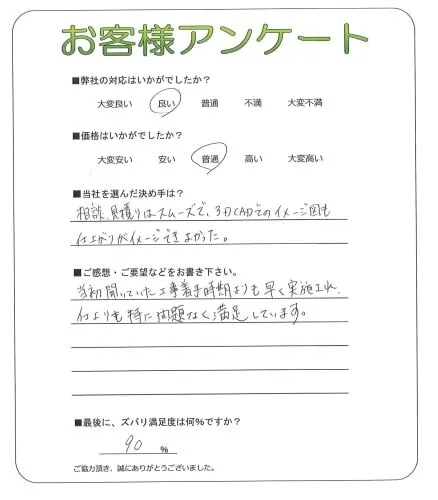 お客様アンケート
■弊社の対応はいかがでしたか？
大変良い 良い 普通 不満 大変不満
■価格はいかがでしたか？
大変安い 安い 普通 高い 大変高い
■当社を選んだ決め手は？
相談、見積りはスムーズで、3DCADでのイメージ図も
仕上がりがイメージできよかった。
■ご感想・ご要望などをお書き下さい。
当初聞いていた工事着手時期よりも早く実施され、
仕上りも特に問題なく満足しています。
■最後に、ズバリ満足度は何%ですか？
90 %
ご協力頂き、誠にありがとうございました。